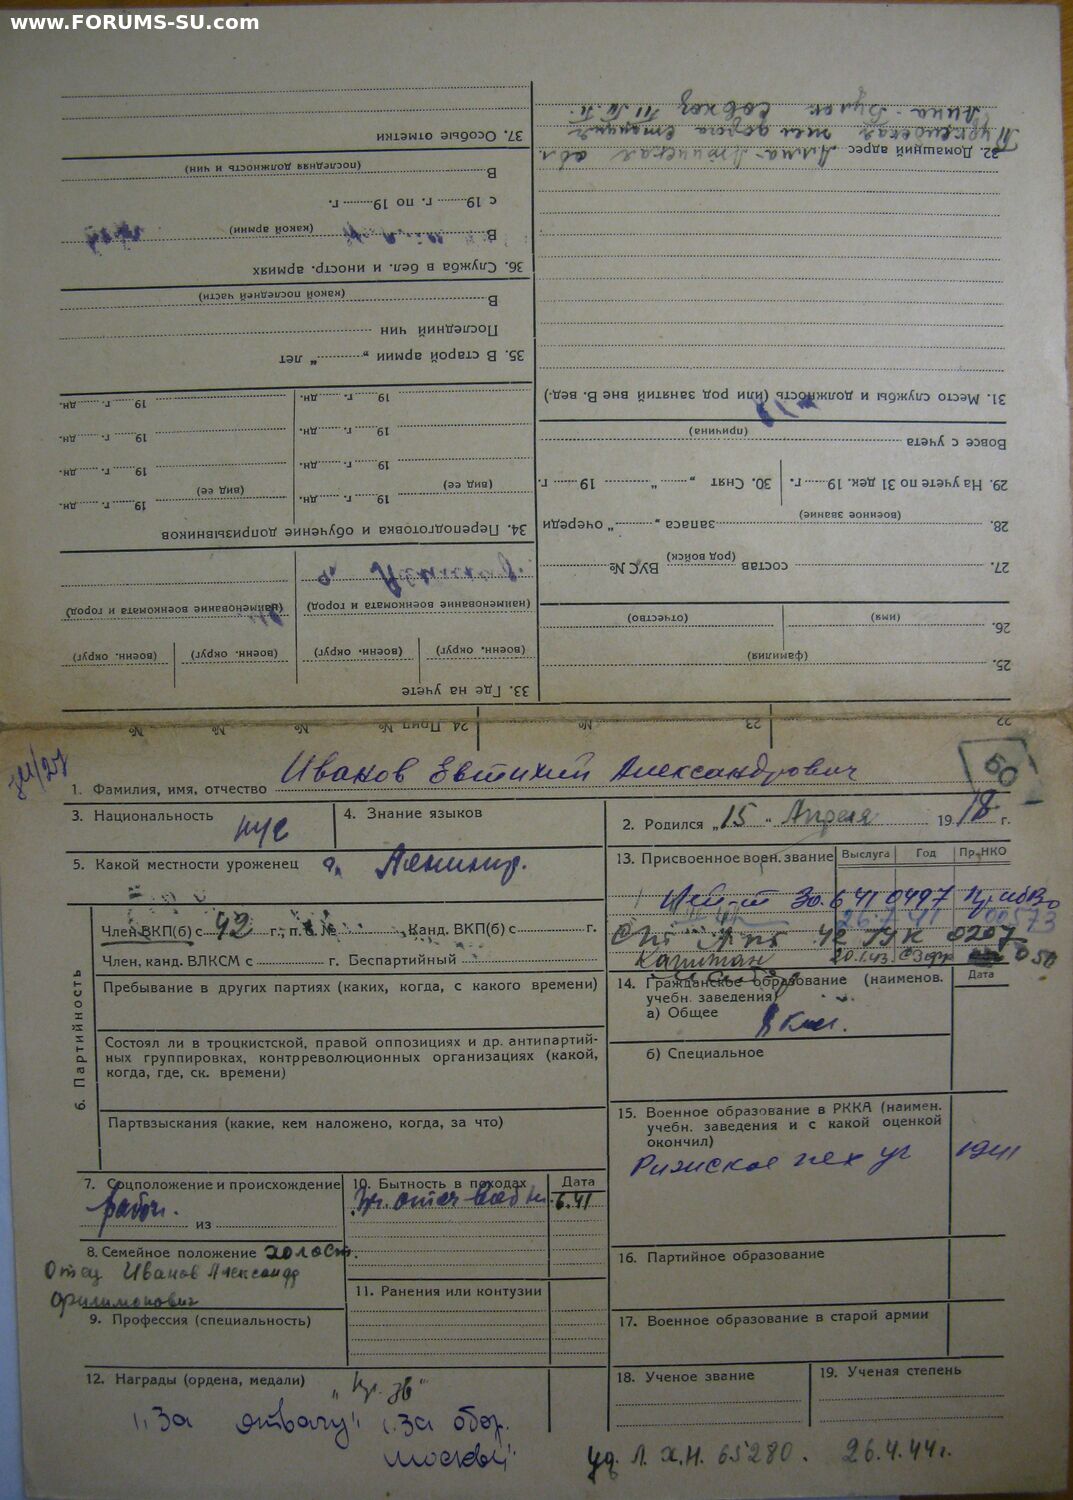 www.FORUMS-SU.com
37. Особые отметки
В
(последняя должность и чин)
с 19 г. по 19 г.
В
(какой армии)
36. Служба в бел. и иностр. армиях
В
(какой последней части)
Последний чин
35. В старой армии „ “ лет
19 г. дн. 19 г. дн.
19 г. дн. 19 г. дн.
19 г. дн. 19 г. дн.
(вид ее) (вид ее)
19 г. дн. 19 г. дн.
34. Переподготовка и обучение допризывников
(наименование военкомата и город) (наименование военкомата и город)
(воен. округ) (воен. округ) (воен. округ) (воен. округ)
33. Где на учете
Совхоз
Туркенская
32. Домашний адрес Алма-Атинская обл
31. Место службы и должность (или род занятий вне В. вед.)
(причина)
Вовсе с учета
29. На учете по 31 дек. 19 г. 30. Снят „ “ 19 г.
(военное звание)
28. запаса „ “ очереди
27. состав (род войск) ВУС №
(имя) (отчество)
26.
(фамилия)
25.
22 23 № 24 Прип № № № №
50
1. Фамилия, имя, отчество Иванов Евтихий Александрович
3. Национальность рус
4. Знание языков
2. Родился „15“ Апреля 1918 г.
5. Какой местности уроженец г. Ленингр.
13. Присвоенное воен. звание Выслуга Год Пр. НКО
Лей-т 30.6 41 0497 ПрибВо
26.7.41 00573
Ст. 42 0207
Капитан 20.1.43. 050
6. Партийность
Член ВКП(б) с 42 г., п. б. № Канд. ВКП(б) с г.
Член, канд. ВЛКСМ с г. Беспартийный
Пребывание в других партиях (каких, когда, с какого времени)
Состоял ли в троцкистской, правой оппозициях и др. антипартий-
ных группировках, контрреволюционных организациях (какой,
когда, где, ск. времени)
Партвзыскания (какие, кем наложено, когда, за что)
14. Гражданское образование (наименов.
учебн. заведения)
Дата
а) Общее 8 клас.
б) Специальное
15. Военное образование в РККА (наимен.
учебн. заведения и с какой оценкой
окончил)
Рижское пех уч 1941
7. Соцположение и происхождение
рабоч.
из
10. Бытность в походах Дата
Уч. отеч войны 6.41
8. Семейное положение холост.
Отец Иванов Александр
Филимонович
16. Партийное образование
11. Ранения или контузии
9. Профессия (специальность)
17. Военное образование в старой армии
12. Награды (ордена, медали)
„Кр. Зв“
„За отвагу“ „За обор.
Москвы“
18. Ученое звание
19. Ученая степень
уд. Л. Х.Н. 65280. 26.4.44г.